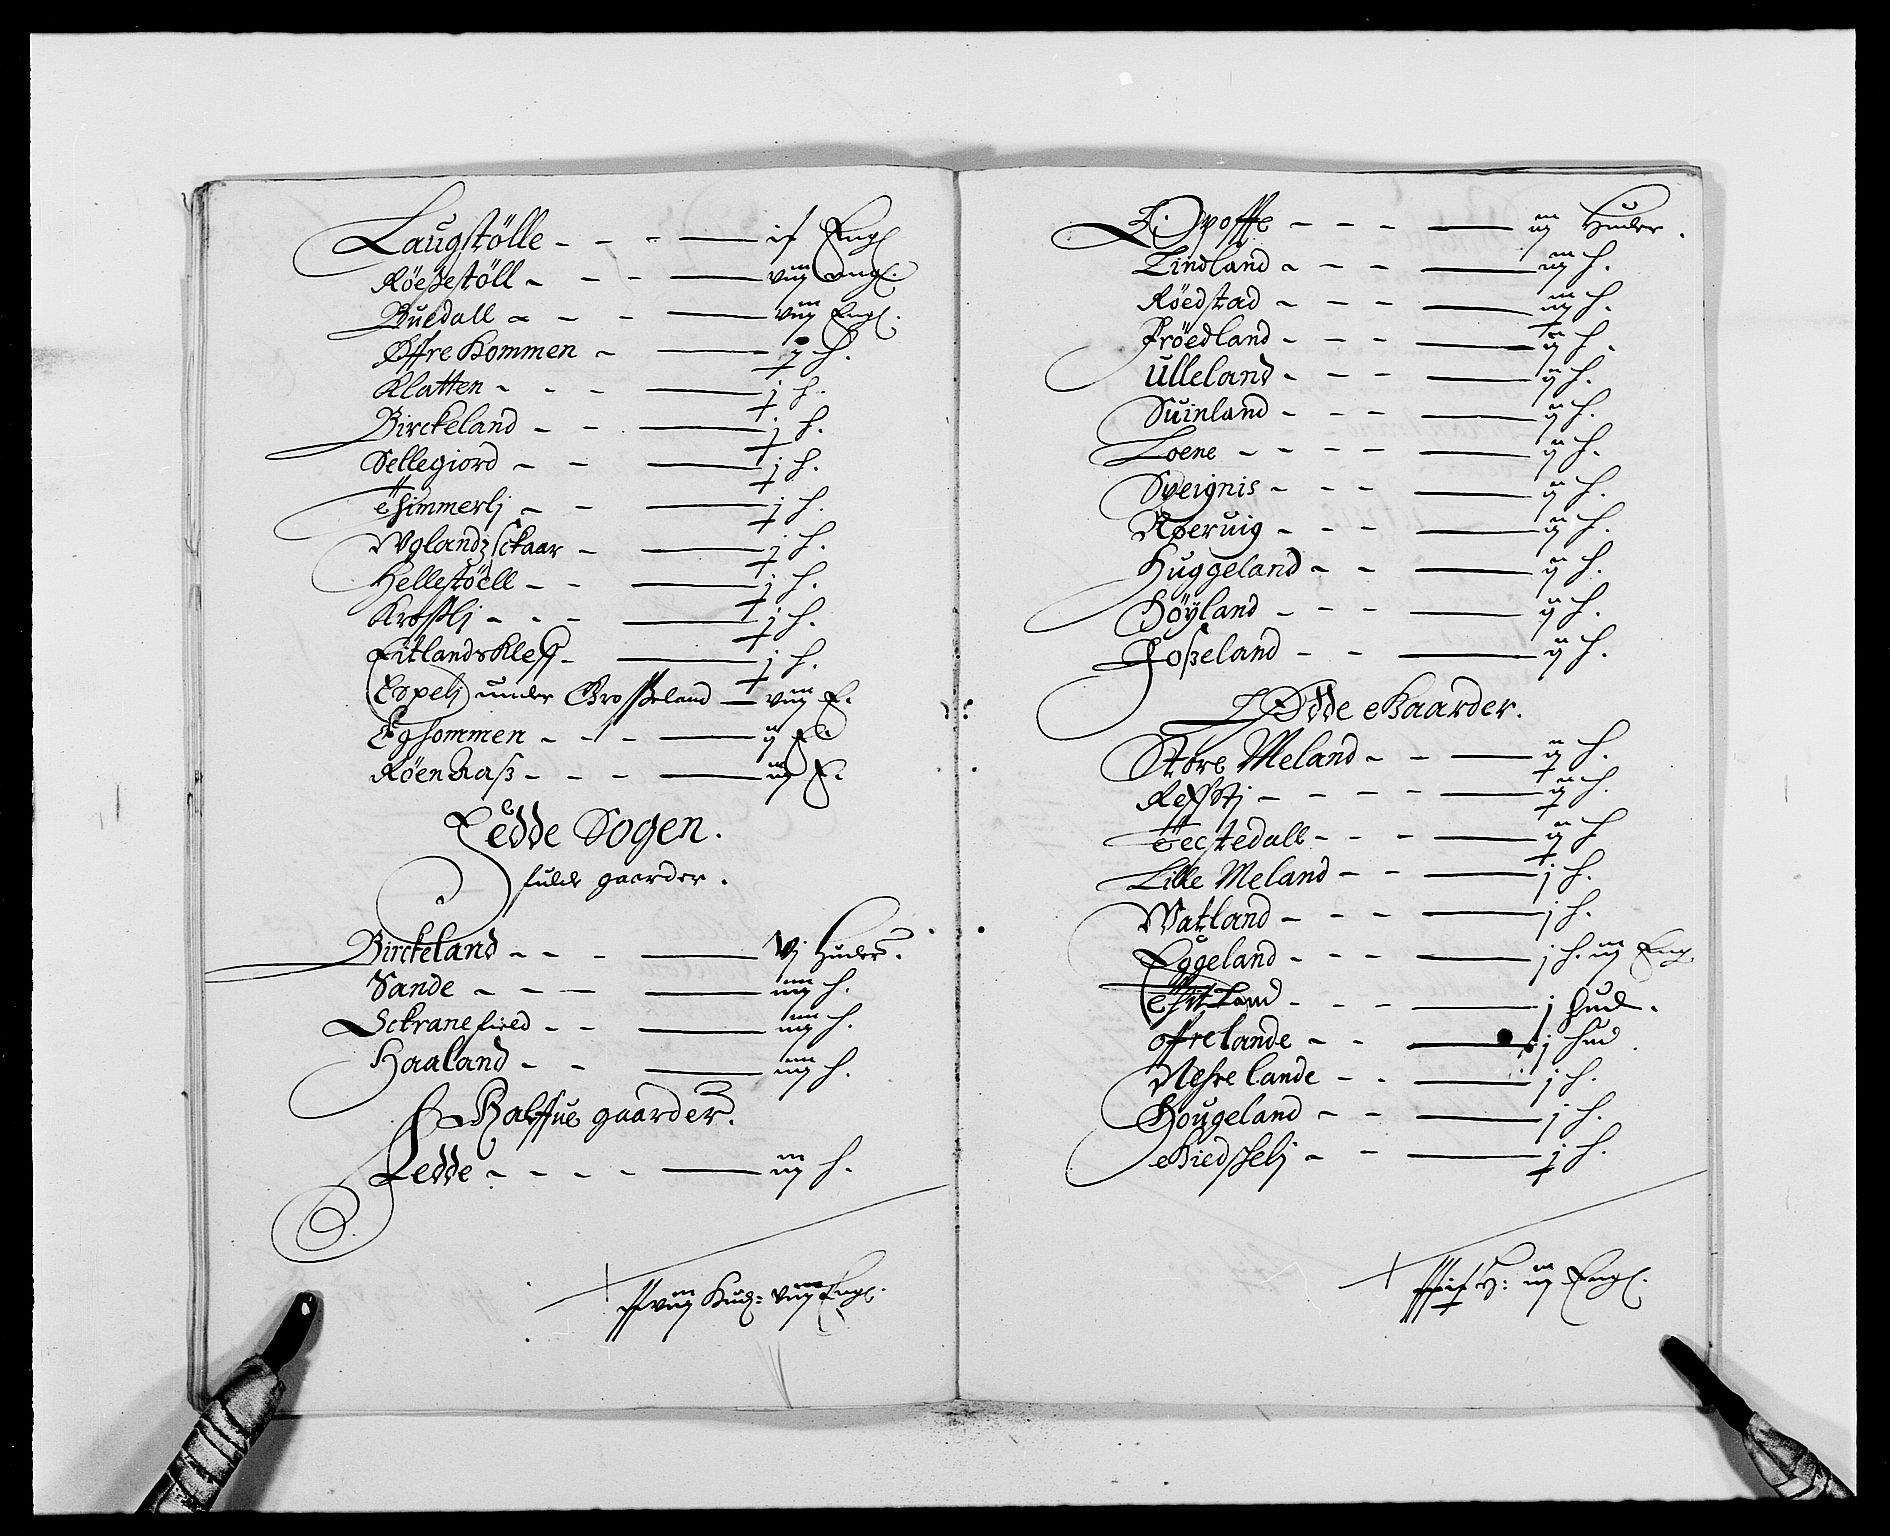 Laugstölle - - - is Engl
Röeßestöll - - - viij Engl.
Buedall - - - viij Engl.
Øffre Kommen - j h.
Klatten - - - j h.
Birckeland - - j h.
Sellegiord - - j h.
Thimmerlj - - j h.
Wglandzsckaar - j h.
Hellestöell - - j h.
Krosslj - - - j h.
Eitlandskleff - j h.
Espelj under Grosseland - viij E.
Eghommen - - - ij E.
Röenaaß - - - iij E.
Fedde Sogen.
fulde gaarder.
Birckeland - - - vj Huder.
Sande - - - iiij h.
Sckranefield - - iiij h.
Haaland - - iiij h.
Halffue gaarder.
Fedde - - - - iij h.
viij Hud: viij Engl.
Opofte - - - iij Huder.
Lindland - - - iij h.
Röedstad - - - iij h.
Fröedland - - - ij h.
Ulleland - - - ij h.
Suinland - - - ij h.
Loene - - - - ij h.
Sveignis - - - ij h.
Aperuig - - - ij h.
Huggeland - - ij h.
Höyland - - - ij h.
Foßeland - - ij h.
Ödde Gaarder.
Store Meland - - ij h.
Refstj - - - - ij h.
Tectedall - - - ij h.
Lille Meland - - j h.
Watland - - - j h.
Eggeland - - - j h. iij Eng
- - - j Hud.
offre lande - - j hud
Nehre lande - - j h.
Hougeland - - j h.
Giedsselj - - j h.
H: iij Engl.